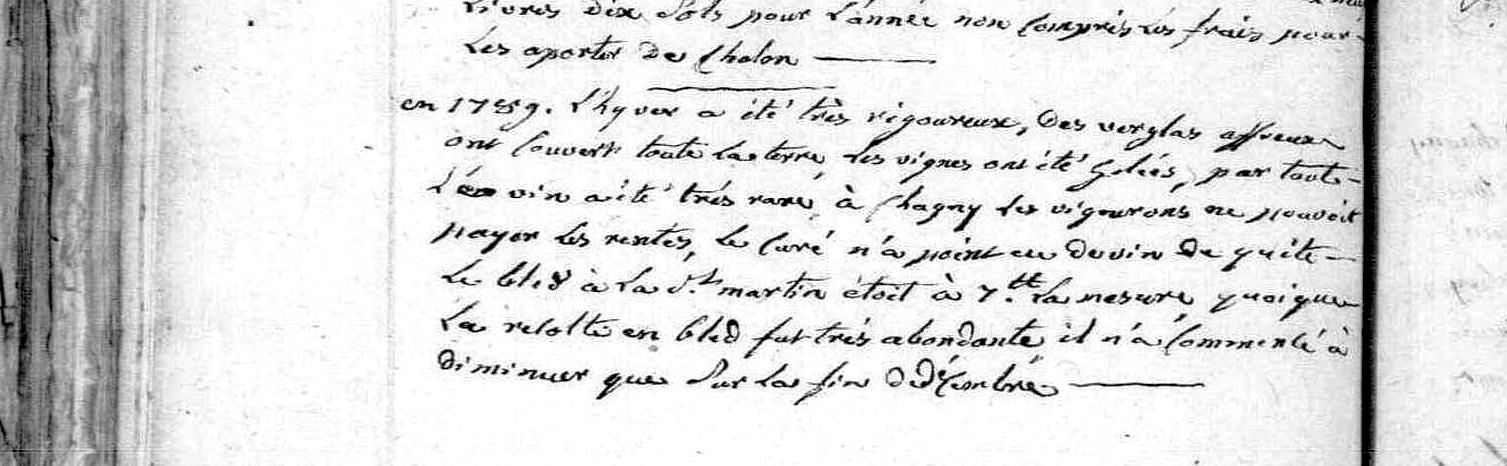 livres dix sols pour l'année non compris les frais pour
les aporter de Chalon
en 1789. l'hyver a été très rigoureux, des verglas affreux
ont couvert toute la terre, les vignes ont été gelées, par tout
le vin a été très rare, à Chagny les vignerons ne pouvoit
payer les rentes, le Curé n'a point eu de vin de quête
le bled à la St martin étoit à 7.tt la mesure, quoique
la recolte en bled fut très abondante il n'a commencé à
diminuer que sur la fin de décembre